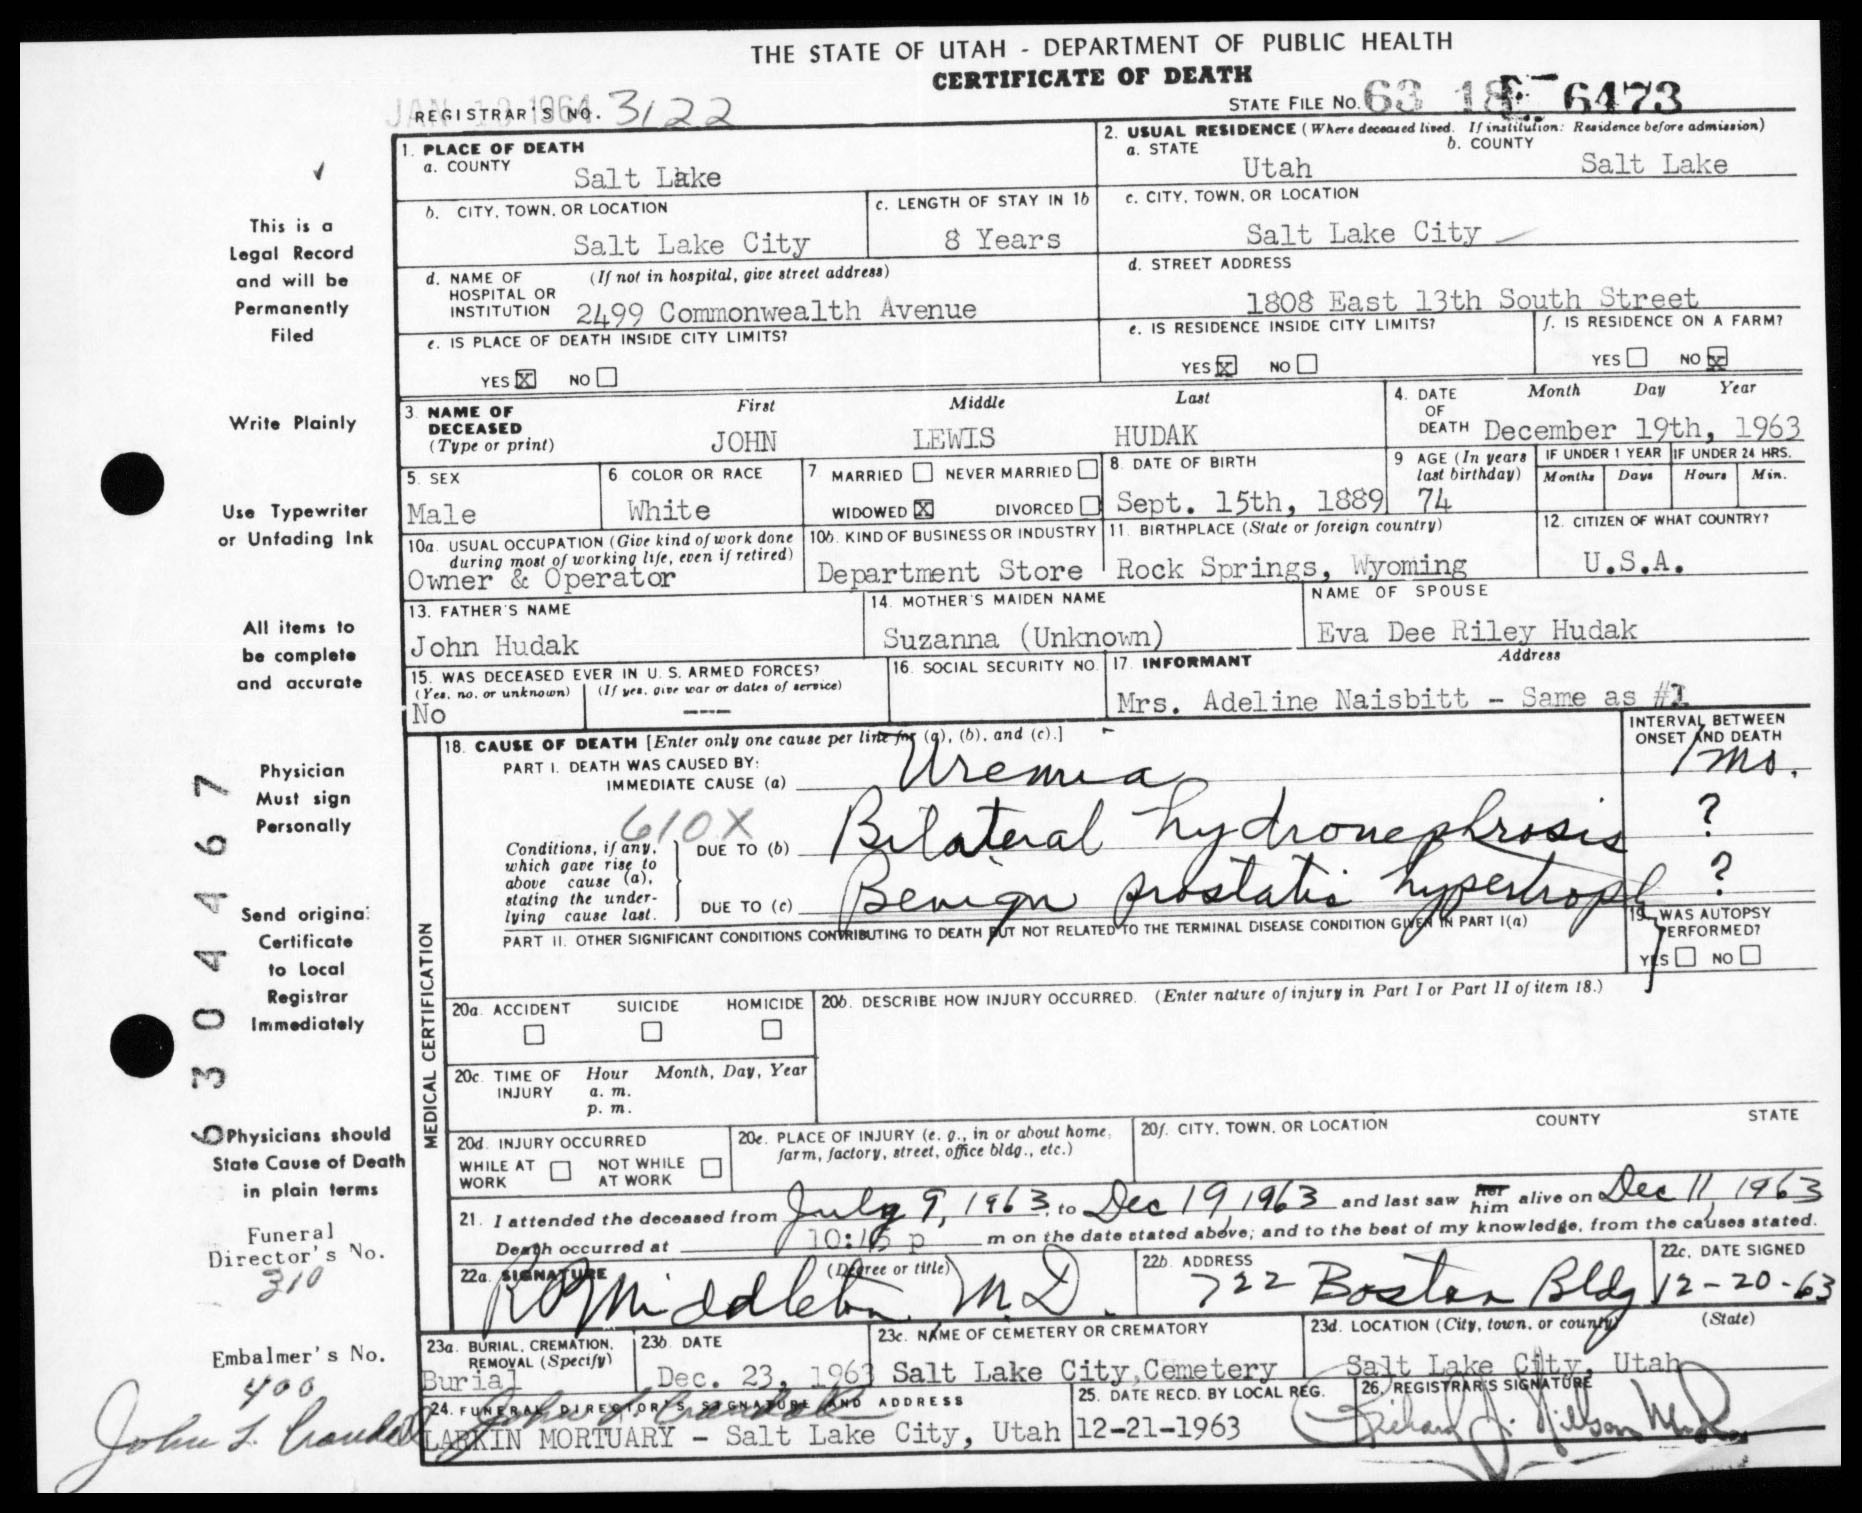 THE STATE OF UTAH - DEPARTMENT OF PUBLIC HEALTH
CERTIFICATE OF DEATH
JAN 10 1964
REGISTRAR'S NO. 3122
STATE FILE NO. 63 18 6473
1. PLACE OF DEATH
a. COUNTY
Salt Lake
2. USUAL RESIDENCE (Where deceased lived. If institution: Residence before admission)
a. STATE
Utah
b. COUNTY
Salt Lake
b. CITY, TOWN, OR LOCATION
Salt Lake City
c. LENGTH OF STAY IN 1b
8 Years
c. CITY, TOWN, OR LOCATION
Salt Lake City
d. NAME OF HOSPITAL OR INSTITUTION
(If not in hospital, give street address)
2499 Commonwealth Avenue
d. STREET ADDRESS
1808 East 13th South Street
e. IS PLACE OF DEATH INSIDE CITY LIMITS?
YES X NO
e. IS RESIDENCE INSIDE CITY LIMITS?
YES X NO
f. IS RESIDENCE ON A FARM?
YES NO X
3. NAME OF DECEASED
(Type or print)
First Middle Last
JOHN LEWIS HUDAK
4. DATE OF DEATH
Month Day Year
December 19th, 1963
5. SEX
Male
6 COLOR OR RACE
White
7. MARRIED NEVER MARRIED
WIDOWED X DIVORCED
8. DATE OF BIRTH
Sept. 15th, 1889
9 AGE (In years last birthday)
74
IF UNDER 1 YEAR
Months Days
IF UNDER 24 HRS.
Hours Min.
10a. USUAL OCCUPATION (Give kind of work done during most of working life, even if retired)
Owner & Operator
10b. KIND OF BUSINESS OR INDUSTRY
Department Store
11. BIRTHPLACE (State or foreign country)
Rock Springs, Wyoming
12. CITIZEN OF WHAT COUNTRY?
U.S.A.
13. FATHER'S NAME
John Hudak
14. MOTHER'S MAIDEN NAME
Suzanna (Unknown)
NAME OF SPOUSE
Eva Dee Riley Hudak
15. WAS DECEASED EVER IN U. S. ARMED FORCES?
(Yes, no, or unknown) (If yes, give war or dates of service)
No ---
16. SOCIAL SECURITY NO.
17. INFORMANT Address
Mrs. Adeline Naisbitt - Same as #1
MEDICAL CERTIFICATION
18. CAUSE OF DEATH [Enter only one cause per line for (a), (b), and (c).]
INTERVAL BETWEEN ONSET AND DEATH
PART I. DEATH WAS CAUSED BY:
IMMEDIATE CAUSE (a) Uremia 1 mo.
610X
Conditions, if any, which gave rise to above cause (a), stating the underlying cause last.
DUE TO (b) Bilateral hydronephrosis ?
DUE TO (c) Benign prostatic hypertrophy ?
PART II. OTHER SIGNIFICANT CONDITIONS CONTRIBUTING TO DEATH BUT NOT RELATED TO THE TERMINAL DISEASE CONDITION GIVEN IN PART I(a)
19. WAS AUTOPSY PERFORMED?
YES NO
20a. ACCIDENT SUICIDE HOMICIDE
20b. DESCRIBE HOW INJURY OCCURRED. (Enter nature of injury in Part I or Part II of item 18.)
20c. TIME OF INJURY
Hour Month, Day, Year
a. m.
p. m.
20d. INJURY OCCURRED
WHILE AT WORK NOT WHILE AT WORK
20e. PLACE OF INJURY (e. g., in or about home, farm, factory, street, office bldg., etc.)
20f. CITY, TOWN, OR LOCATION COUNTY STATE
21. I attended the deceased from July 9, 1963, to Dec 19, 1963 and last saw her him alive on Dec 11, 1963
Death occurred at 10:15 p m on the date stated above; and to the best of my knowledge, from the causes stated.
22a. SIGNATURE (Degree or title)
R O Middleton M.D.
22b. ADDRESS
722 Boston Bldg
22c. DATE SIGNED
12-20-63
23a. BURIAL, CREMATION, REMOVAL (Specify)
Burial
23b. DATE
Dec. 23, 1963
23c. NAME OF CEMETERY OR CREMATORY
Salt Lake City Cemetery
23d. LOCATION (City, town, or county) (State)
Salt Lake City, Utah
24. FUNERAL DIRECTOR'S SIGNATURE AND ADDRESS
LARKIN MORTUARY - Salt Lake City, Utah
25. DATE RECD. BY LOCAL REG.
12-21-1963
26. REGISTRAR'S SIGNATURE
This is a
Legal Record
and will be
Permanently
Filed
Write Plainly
Use Typewriter
or Unfading Ink
All items to
be complete
and accurate
Physician
Must sign
Personally
Send original
Certificate
to Local
Registrar
Immediately
Physicians should
State Cause of Death
in plain terms
6304467
Funeral
Director's No.
310
Embalmer's No.
400